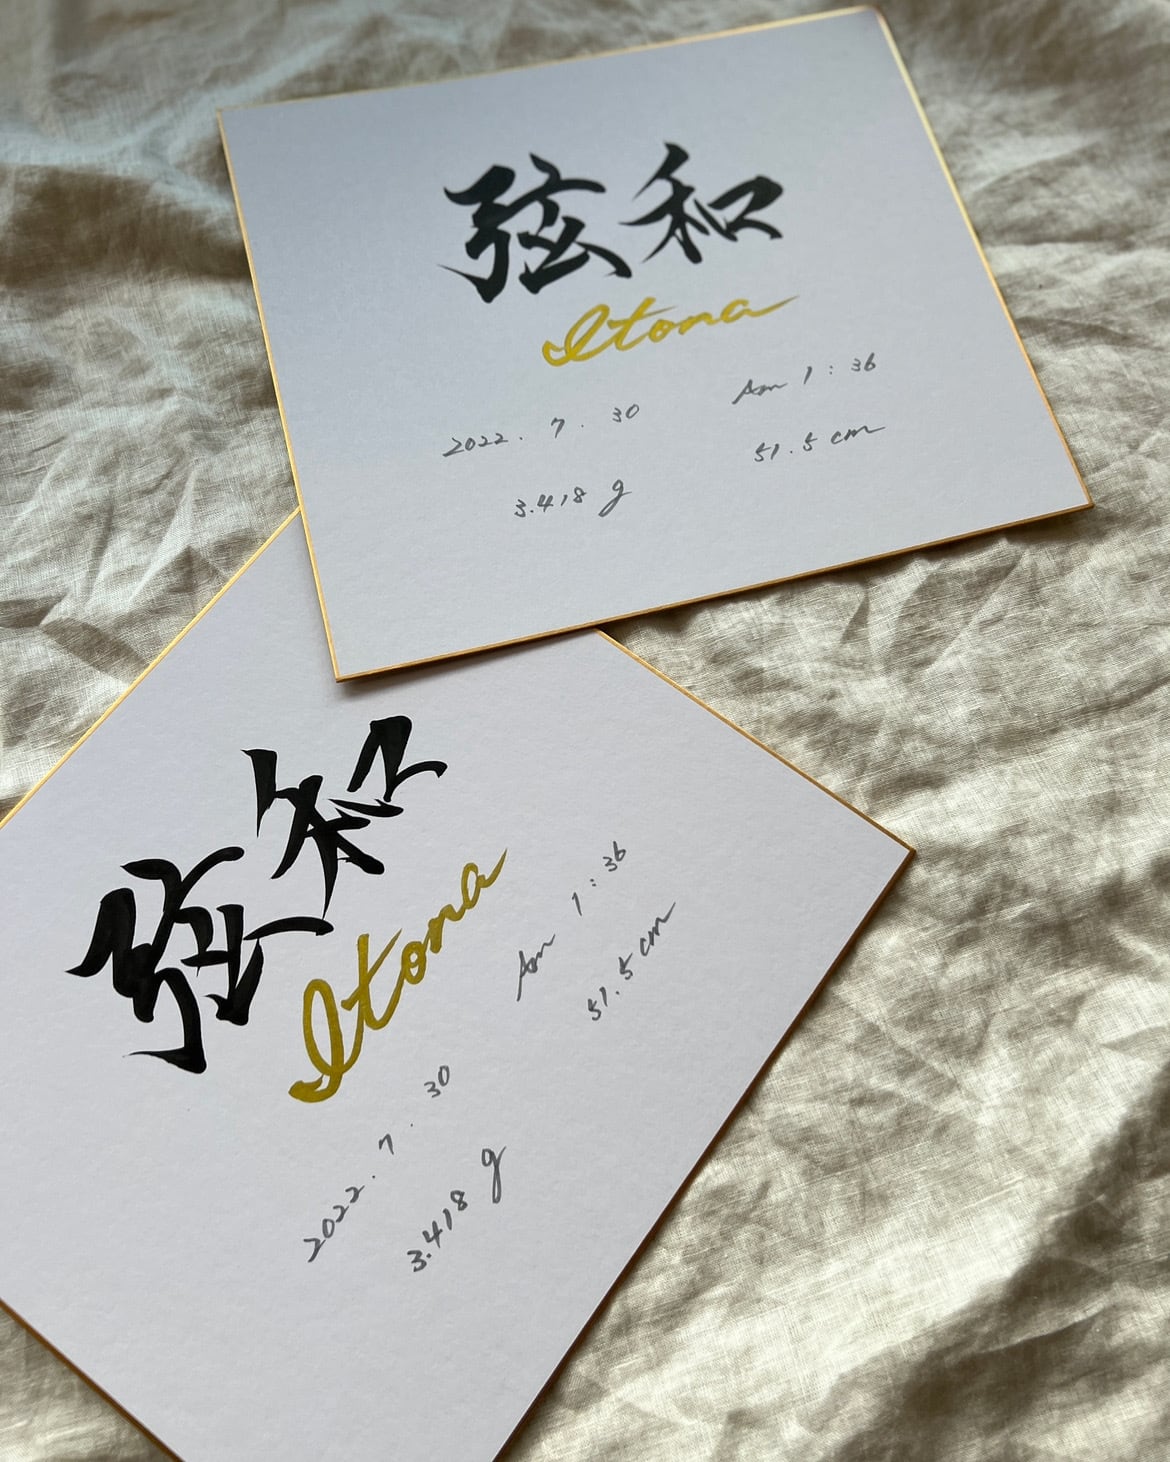 弦和
Itona
2022. 7. 30 Am 1:36
3.418 g 51.5 cm
弦和
Itona
2022. 7. 30 Am 1:36
3.418 g 51.5 cm